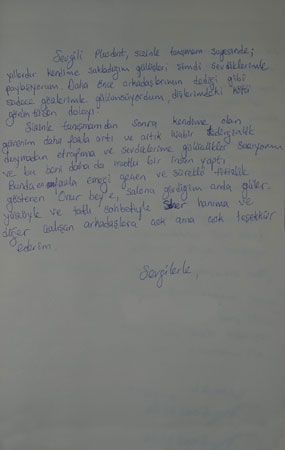 Sevgili Plusdent, sizinle tanışmam sayesinde;
yıllardır kendime sakladığım gülüşleri şimdi sevdiklerimle
paylaşıyorum. Daha önce arkadaşlarımın dediği gibi
sadece gözlerimle gülümsüyordum, dişlerimdeki kötü
görüntüden dolayı.
Sizinle tanışmamdan sonra kendime olan
güvenim daha fazla arttı ve artık hiçbir tedirginlik
duymadan etrafıma ve sevdiklerime gülücükler saçıyorum
ve bu beni daha da mutlu bir insan yaptı.
Bunda en fazla emeği geçen ve sürekli titizlik
gösteren Onur bey'e, salona girdiğim anda güler
yüzüyle ve tatlı sohbetiyle hanıma ve
diğer çalışan arkadaşlara çok ama çok teşekkür
ederim.
Sevgilerle,